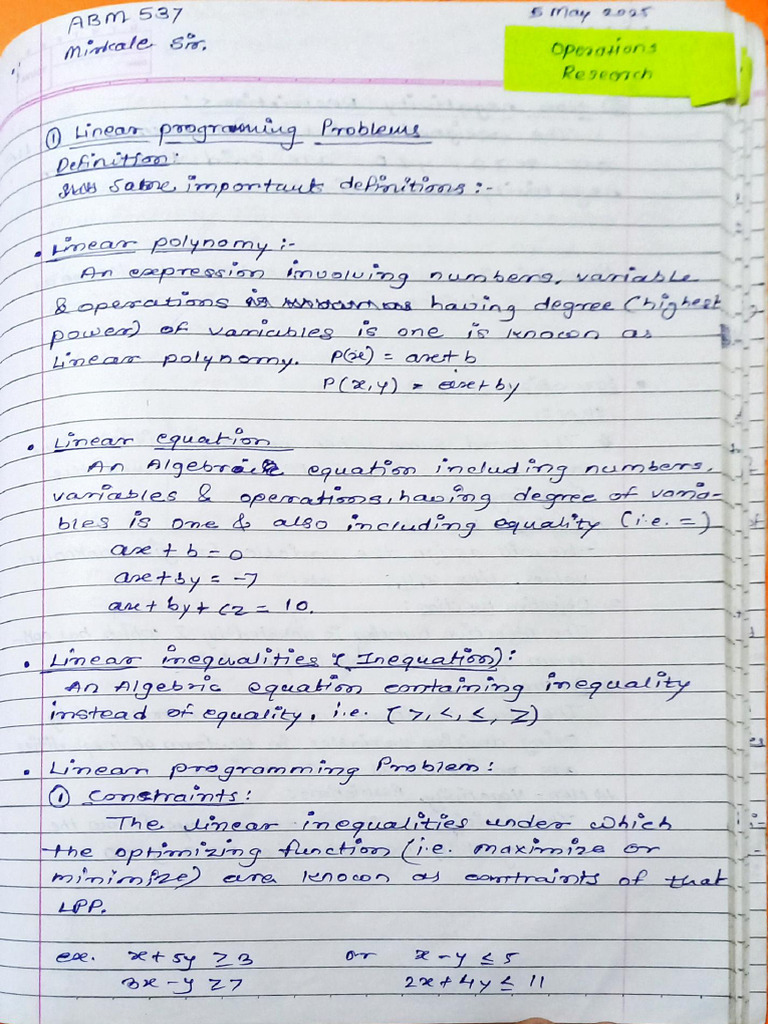 ABM 537
5 May 2025
Mirkale Sir.
Operations
Research
① Linear programming Problems
Definition:
Some important definitions :-
• Linear polynomy :-
An expression involving numbers, variable
& operations having degree (highest
power) of variables is one is known as
Linear polynomy. P(x) = ax + b
P(x,y) = ax + by
• Linear equation
An Algebric equation including numbers,
variables & operations, having degree of varia-
bles is one & also including equality (i.e. =)
ax + b = 0
ax + by = -7
ax + by + cz = 10.
• Linear inequalities (Inequation):
An Algebric equation containing inequality
instead of equality. i.e. (>, <, ≤, ≥)
• Linear programming Problem:
① Constraints:
The linear inequalities under which
the optimizing function (i.e. maximize or
minimize) are known as contraints of that
LPP.
ex. x + 5y ≥ 3 or x - y ≤ 5
3x - y ≥ 7 2x + 4y ≤ 11